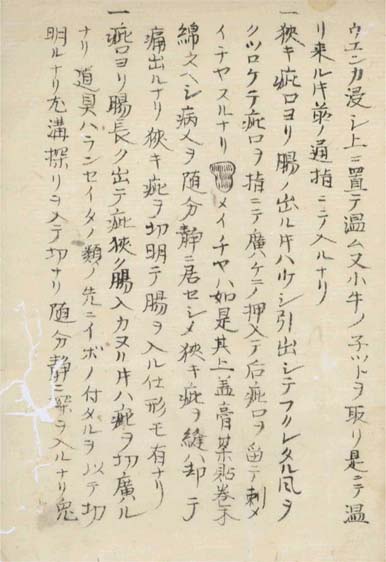 ウエンカ浸シ上ニ置テ温ム又小牛ノ子ツトヲ取リ是ニテ温
リ来ル片前ノ通指ニテ入ルナリ
一狭キ疵口ヨリ腸ノ出ル片ハ少シ引出シテフクレタル風ヲ
クツロケテ疵口ヲ指ニテ廣ハケテ押入テ后疵口ヲ留テ刺メ
イチヤスルナリ メイチヤハ如是其上盖膏薬貼巻木
綿スヘシ病人ヲ随分静ニ居セシメ狭キ疵ヲ縫ハ却テ
痛出ルナリ狭キ疵ヲ切明テ腸ヲ入ル仕形モ有ナリ
一疵口ヨリ腸長ク出テ疵狭ク腸入カヌル片ハ疵ヲ切廣ル
ナリ道具ハランセイタノ類ノ先ニイボノ付タルヲ以テ切
明ルナリ尤溝探リヲ入テ切ナリ随分静ニ深ヲ入ルナリ鬼